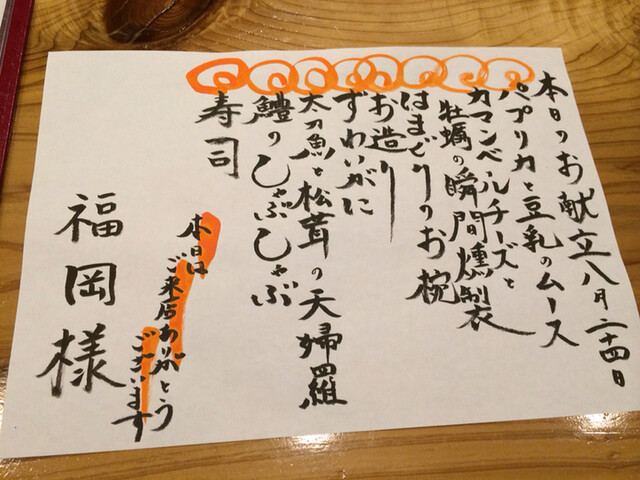 本日のお献立八月二十四日
パプリカと豆乳のムース
カマンベールチーズと
牡蠣の瞬間燻製
はまぐりのお椀
お造り
ずわいがに
太刀魚と松茸の天婦羅
鱧のしゃぶしゃぶ
寿司
本日は
ご来店ありがとう
ございます
福岡様